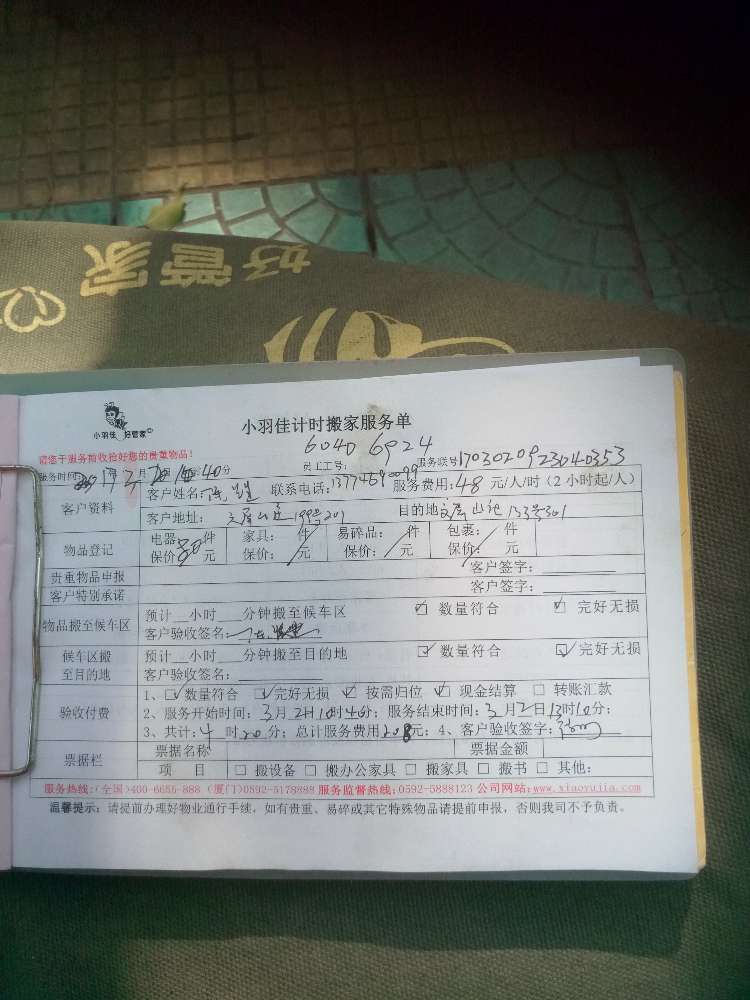 好管家
小羽佳 好管家
小羽佳计时搬家服务单
请您于服务前收拾好您的贵重物品!
6040 6924
服务时间: 17年3月2日10时40分 员工工号: 服务联号1703020923040353
客户资料
客户姓名: 联系电话: 服务费用:48元/人/时(2小时起/人)
客户地址: 199号201 目的地 153号301
物品登记
电器 件 家具: 件 易碎品: 件 包裹: 件
保价 元 保价: 元 保价: 元 保价: 元
贵重物品申报 客户签字:
客户特别承诺 客户签字:
物品搬至候车区
预计__小时___分钟搬至候车区 ☑ 数量符合 ☑ 完好无损
客户验收签名:
候车区搬至目的地
预计__小时___分钟搬至目的地 ☑ 数量符合 ☑ 完好无损
客户验收签名:
验收付费
1、☑数量符合 ☑完好无损 ☑ 按需归位 ☑ 现金结算 □ 转账汇款
2、服务开始时间:3月2日10时40分; 服务结束时间:3月2日13时10分;
3、共计:4时20分; 总计服务费用208元; 4、客户验收签字:
票据栏
票据名称 票据金额
项 目 □ 搬设备 □ 搬办公家具 □ 搬家具 □ 搬书 □ 其他:
服务热线:(全国)400-6655-888 (厦门)0592-5178888 服务监督热线:0592-5888123 公司网站:www.xiaoyujia.com
温馨提示: 请提前办理好物业通行手续, 如有贵重、易碎或其它特殊物品请提前申报, 否则我司不予负责。